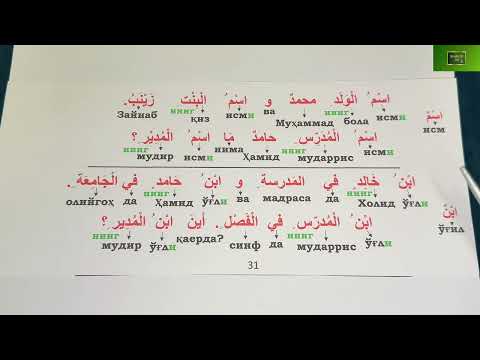 اِسْمُ الْوَلَدِ محمدٌ و اسْمُ الْبِنْتِ زَيْنَبُ.
اِسْمٌ
Зайнаб нинг қиз исми ва Муҳаммад нинг бола исми
исм
اسْمُ الْمُدَرِّسِ حامدٌ مَا اسْمُ الْمُدِيْرِ؟
нинг мудир исми нима Ҳамид нинг мударрис исми
ابْنُ خَالِدٍ في المَدرسةِ و ابْنُ حَامِدٍ في الْجَامِعَةِ.
ابْنٌ
олийгоҳ да нинг Ҳамид ўғли ва мадраса да нинг Холид ўғли
ўғил
ابْنُ الْمُدَرِّسِ في الْفَصْلِ. أَينَ ابْنُ الْمُدِيرِ؟
нинг мудир ўғли қаерда? синф да нинг мударрис ўғли
31